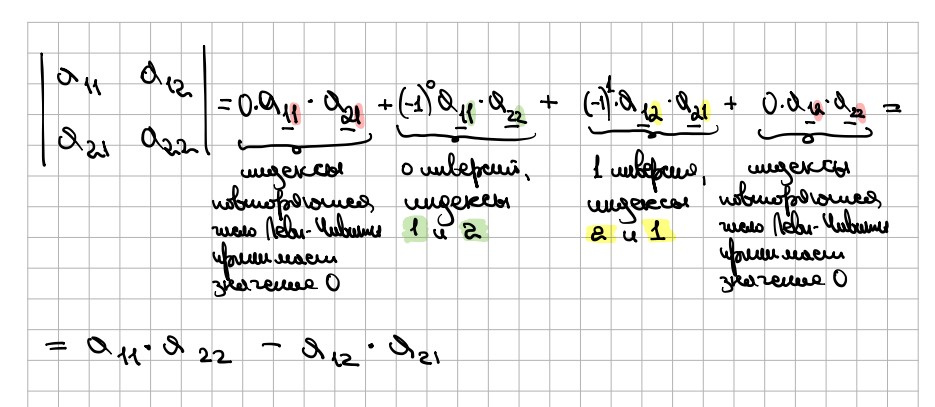 | a₁₁ a₁₂ |
| a₂₁ a₂₂ | = 0·a₁₁ · a₂₁ + (-1)⁰ a₁₁ · a₂₂ + (-1)¹·a₁₂ · a₂₁ + 0·a₁₂·a₂₂ =
индексы
повторяются,
число Леви-Чивиты
принимает
значение 0
0 инверсий,
индексы
1 и 2
1 инверсия,
индексы
2 и 1
индексы
повторяются,
число Леви-Чивиты
принимает
значение 0
= a₁₁ · a₂₂ - a₁₂ · a₂₁